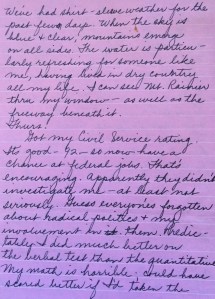 We've had shirt-sleeve weather for the
past few days. When the sky is
blue & clear, mountains emerge
on all sides. The water is particu-
larly refreshing for someone like
me, having lived in dry country
all my life. I can see Mt. Rainier
thru my window — as well as the
freeway beneath it.
Thurs!
Got my Civil Service rating
Its good - 92 - so now have a
chance at federal jobs. That's
encouraging. Apparently they didn't
investigate me - at least not
seriously. Guess everyone's forgotten
about radical politics & my
involvement in them. Predic-
tably I did much better on
the verbal test than the quantitative
My math is horrible; could have
scored better if I'd taken the